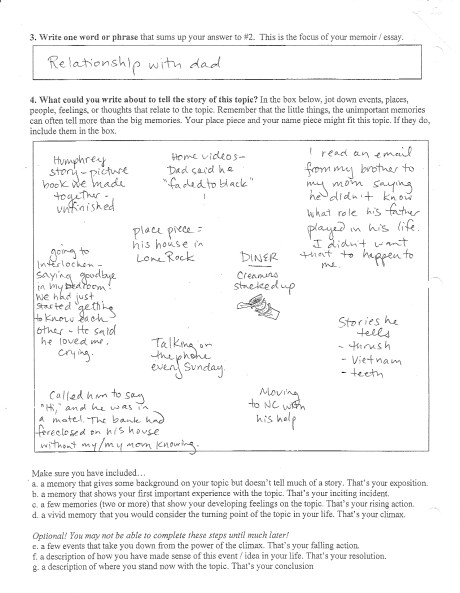 3. Write one word or phrase that sums up your answer to #2. This is the focus of your memoir / essay.
Relationship with dad
4. What could you write about to tell the story of this topic? In the box below, jot down events, places,
people, feelings, or thoughts that relate to the topic. Remember that the little things, the unimportant memories
can often tell more than the big memories. Your place piece and your name piece might fit this topic. If they do,
include them in the box.
Humphrey
story - picture
book we made
together -
unfinished
Home videos -
Dad said he
"faded to black"
!
I read an email
from my brother to
my mom saying
he didn't know
what role his father
played in his life.
I didn't want
that to happen to
me.
place piece =
his house in
Lone Rock
DINER
Creamers
stacked up
going to
Interlochen -
saying goodbye
in my bedroom!
We had just
started getting
to know each
other - He said
he loved me,
crying.
Talking on
the phone
every Sunday.
Stories he
tells
- thrush
- Vietnam
- teeth
Called him to say
"Hi," and he was in
a motel. The bank had
foreclosed on his house
without my/my mom knowing.
Moving
to NC with
his help
Make sure you have included…
a. a memory that gives some background on your topic but doesn't tell much of a story. That's your exposition.
b. a memory that shows your first important experience with the topic. That's your inciting incident.
c. a few memories (two or more) that show your developing feelings on the topic. That's your rising action.
d. a vivid memory that you would consider the turning point of the topic in your life. That's your climax.
Optional! You may not be able to complete these steps until much later!
e. a few events that take you down from the power of the climax. That's your falling action.
f. a description of how you have made sense of this event / idea in your life. That's your resolution.
g. a description of where you stand now with the topic. That's your conclusion